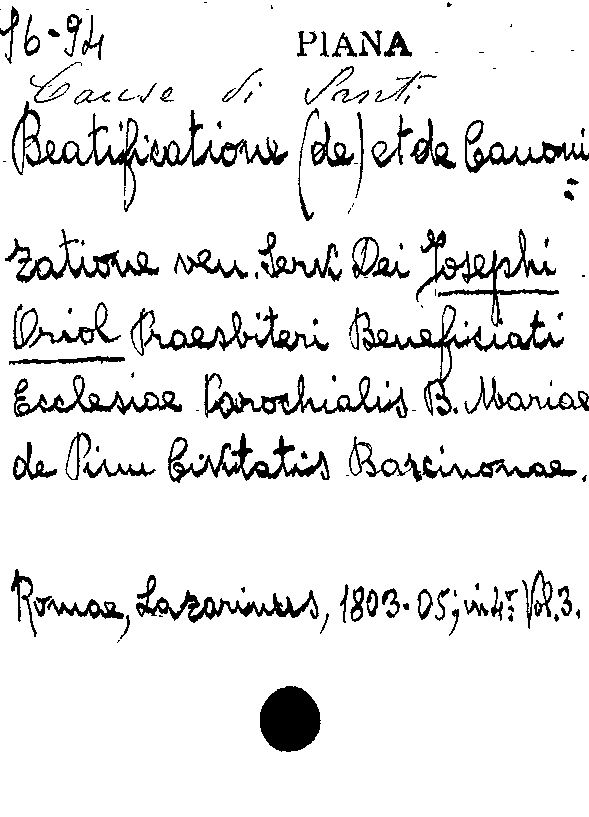 96-94 PIANA
Cause di Santi
Beatificatione (de) et de Canoni=
zatione ven. Servi Dei Josephi
Oriol Praesbiteri Beneficiati
Ecclesiae Parochialis B. Mariae
de Pinu Civitatis Barcinonae.
Romae, Lazarinus, 1803-05; in 4º Vol. 3.